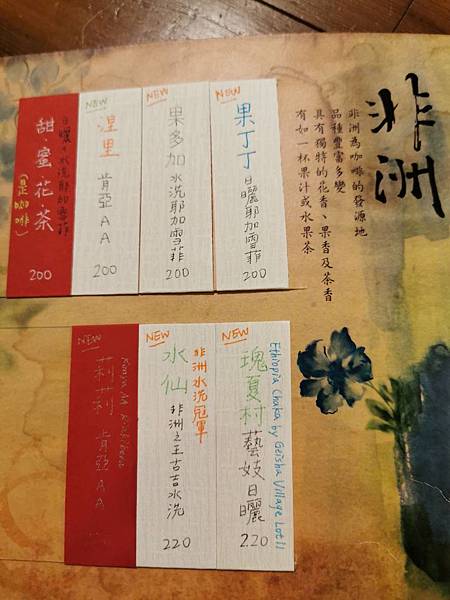 非洲
非洲為咖啡的發源地
品種豐富多變
具有獨特的花香、果香及茶香
有如一杯果汁或水果茶
NEW
果丁丁
日曬耶加雪菲
200
NEW
果多加
水洗耶加雪菲
200
NEW
涅里
肯亞AA
200
甜·蜜·花·茶
(是咖啡)
日曬+水洗耶加雪菲
200
NEW
Ethiopia Chaka by Geisha Village Lot11
瑰夏村
藝妓日曬
220
NEW
非洲水洗冠軍
水仙
非洲之王古吉水洗
220
NEW
莉莉 肯亞AA
Kenya AA